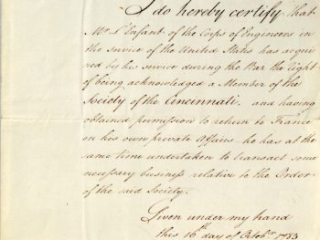 I do hereby certify that
Mr. L'Enfant of the Corps of Engineers in
the service of the United States has acqui
red by his service during the War the right
of being acknowledged a Member of the
Society of the Cincinnati. and having
obtained permission to return to France
on his own private Affairs he has at the
same time undertaken to transact some
necessary business relative to the Order
of the said Society.
Given under my hand
this 16th day of Octobr 1783